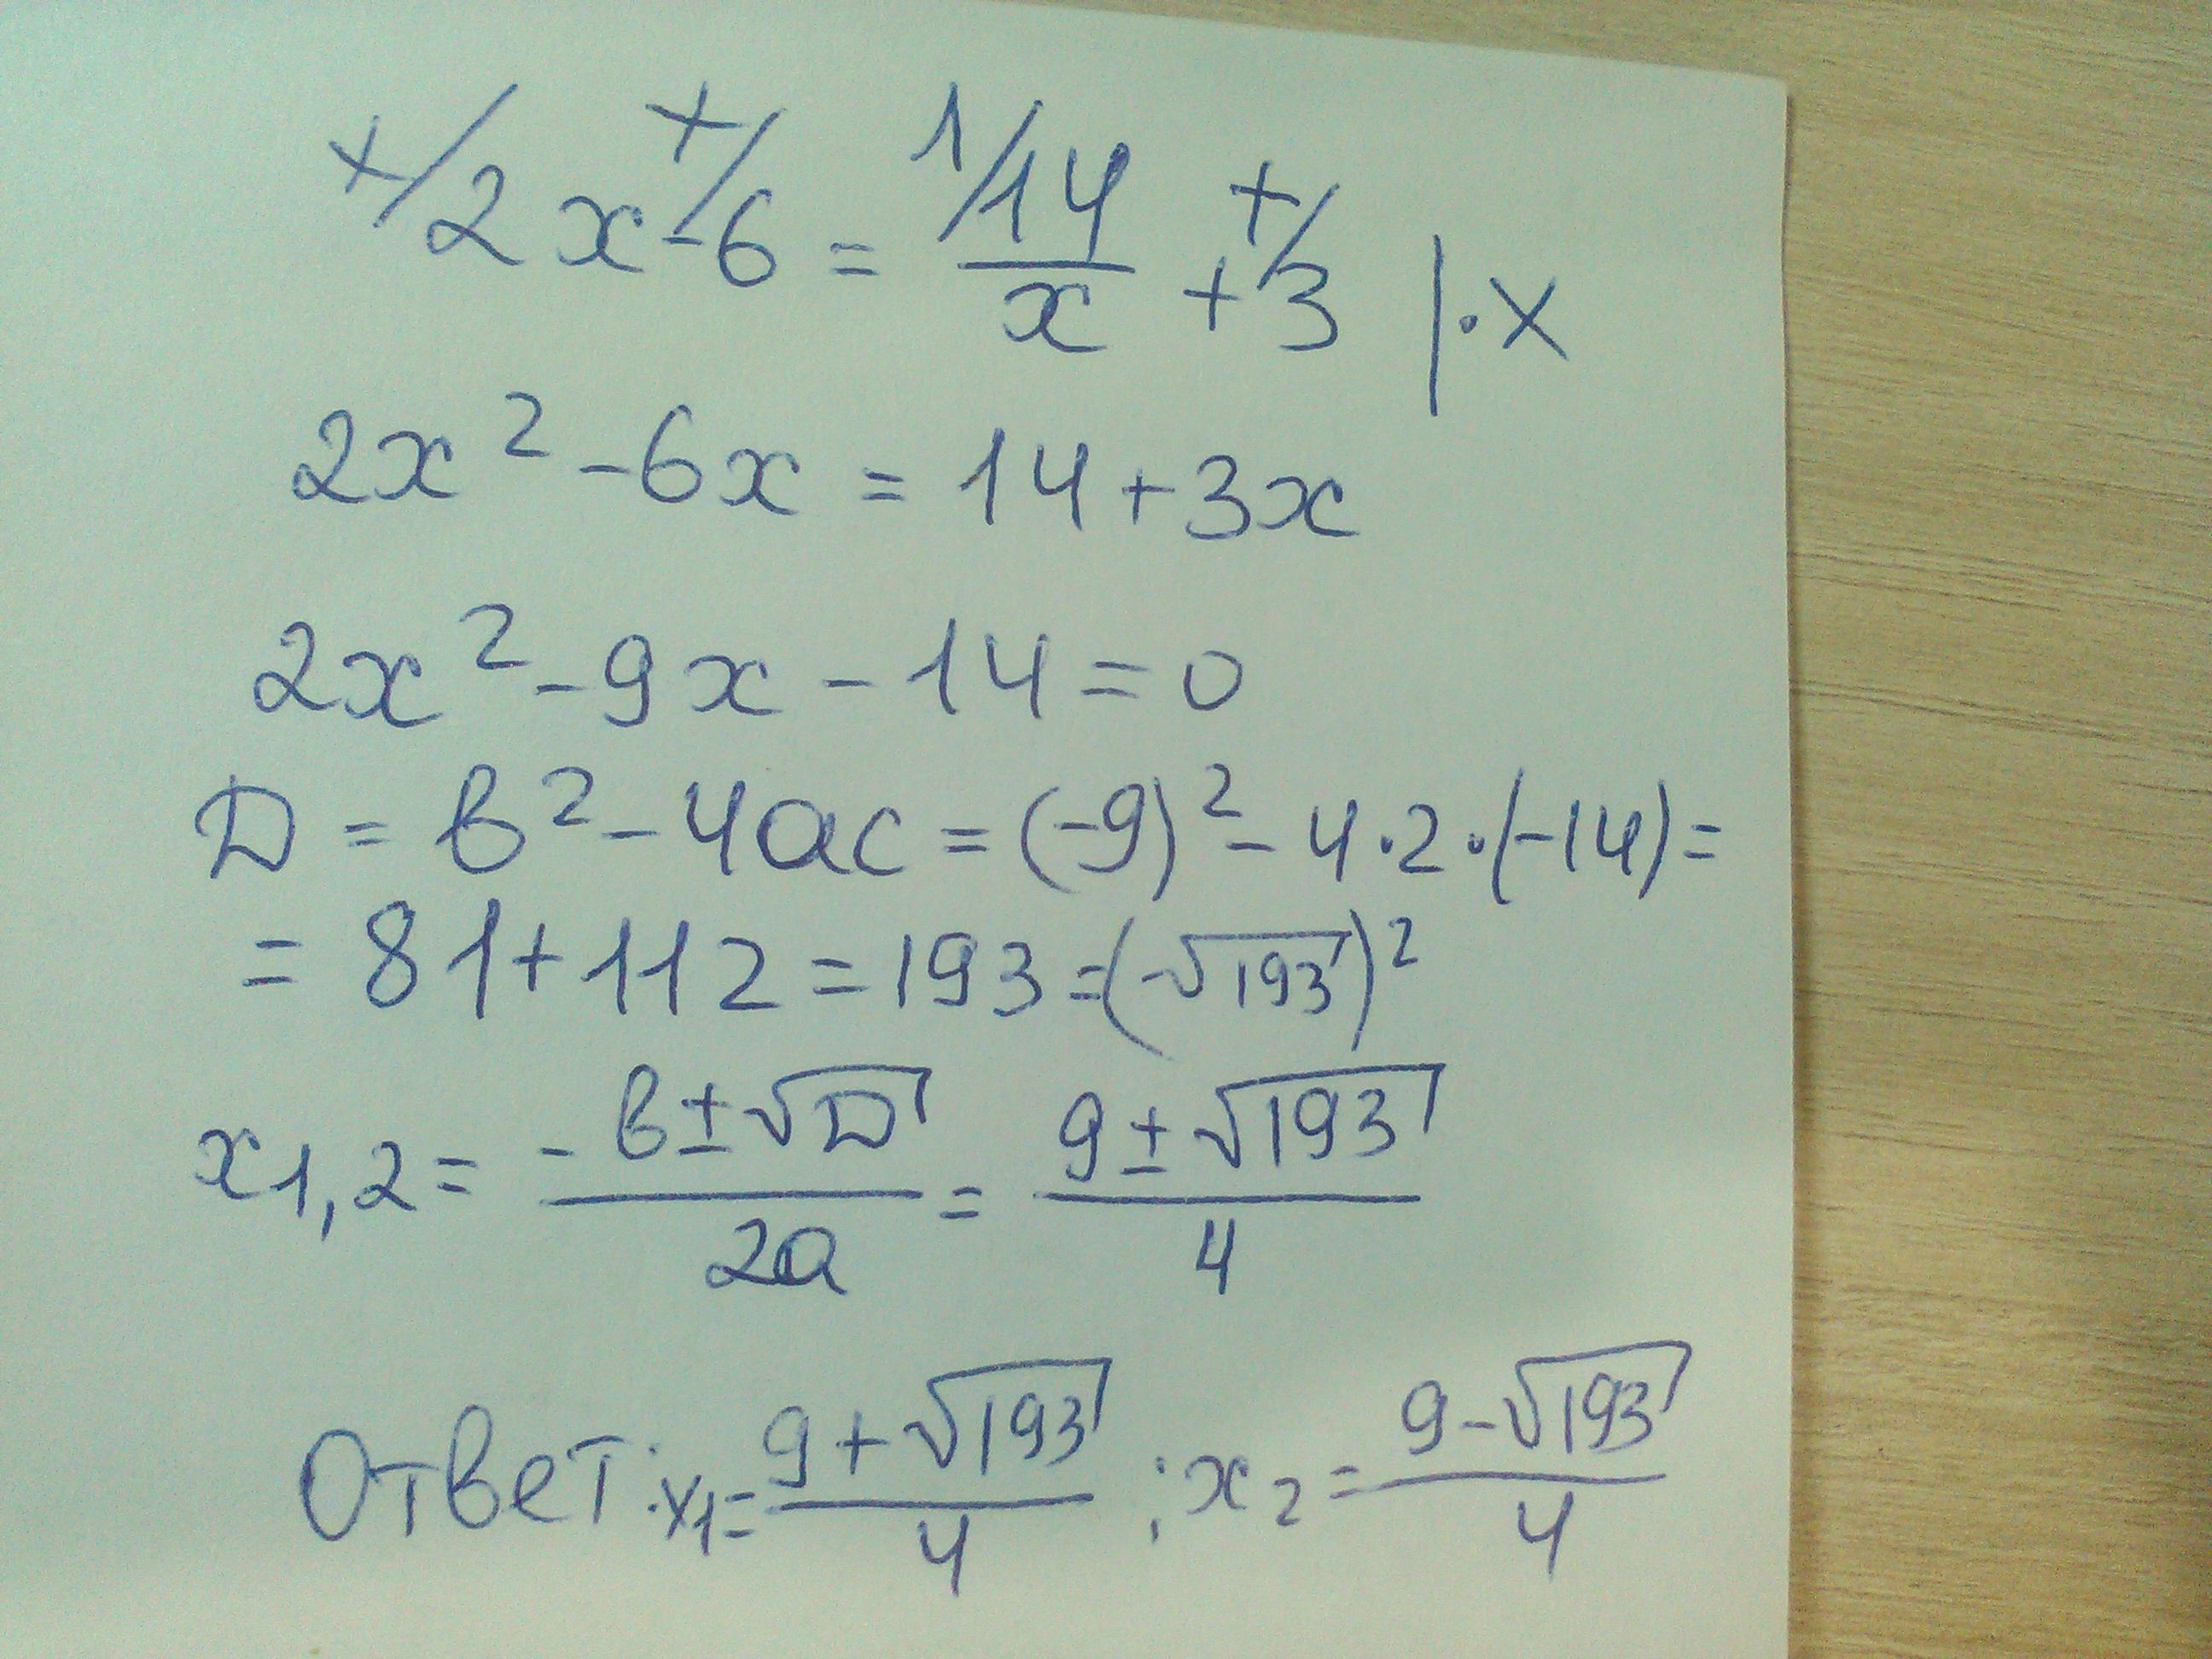 x/2x x/-6 = 1/14/x + x/3 | · x
2x² - 6x = 14 + 3x
2x² - 9x - 14 = 0
D = в² - 4ac = (-9)² - 4·2·(-14) =
= 81 + 112 = 193 = (-√193)²
x1,2 = -в±√D/2a = 9±√193/4
Ответ: x1 = 9+√193/4 ; x2 = 9-√193/4